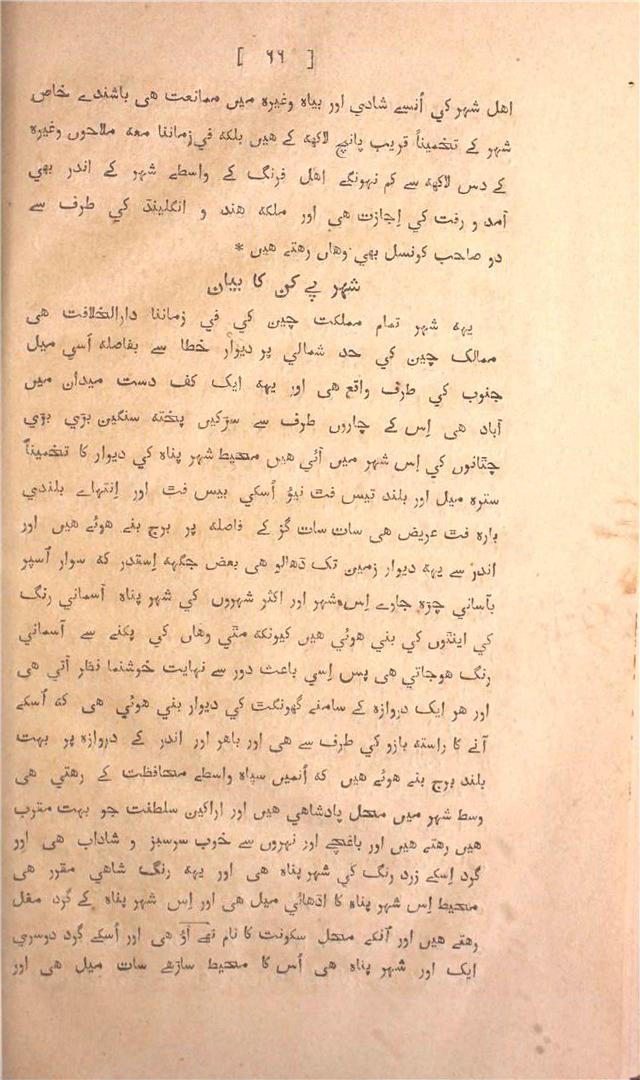 [ ٦٦ ]
اهل شهر كي اُنسے شادي اور بياه وغيره ميں ممانعت هى باشندے خاص
شهر كے تخميناً قريب پانچ لاكهه كے هيں بلكه في زماننا معه ملاحوں وغيره
كے دس لاكهه سے كم نهونگے اهل فرنگ كے واسطے شهر كے اندر بهي
آمد و رفت كي اِجازت هى اور ملكه هند و انگلينڈ كي طرف سے
دو صاحب كونسل بهي وهاں رهتے هيں *
شهر پے كن كا بيان
يهه شهر تمام مملكت چين كي في زماننا دارالخلافت هى
ممالك چين كي حد شمالي پر ديوار خطا سے بفاصله اَسي ميل
جنوب كي طرف واقع هى اور يهه ايك كف دست ميدان ميں
آباد هى اِس كے چاروں طرف سے سڑكيں پخته سنگين بڑي بڑي
چٹانوں كي اِس شهر ميں آئي هيں محيط شهر پناه كي ديوار كا تخميناً
ستره ميل اور بلند تيس فٹ نيؤ اُسكي بيس فٹ اور اِنتهاے بلندي
باره فٹ عريض هى سات سات گز كے فاصله پر برج بنے هوئے هيں اور
اندر سے يهه ديوار زمين تك ڈهالو هى بعض جگهه اِسقدر كه سوار اُسپر
بآساني چڑه جاوے اِس شهر اور اكثر شهروں كي شهر پناه آسماني رنگ
كي اينٹوں كي بني هوئي هيں كيونكه مٹي وهاں كي پكنے سے آسماني
رنگ هوجاتي هى پس اِسي باعث دور سے نهايت خوشنما نظر آتي هى
اور هر ايك دروازه كے سامنے گهونگٹ كي ديوار بني هوئي هى كه اُسكے
آنے كا راسته بازو كي طرف سے هى اور باهر اور اندر كے دروازه پر بهت
بلند برج بنے هوئے هيں كه اُنميں سپاه واسطے محافظت كے رهتي هى
وسط شهر ميں محل پادشاهي هيں اور اراكين سلطنت جو بهت مقرب
هيں رهتے هيں اور باغچے اور نهروں سے خوب سرسبز و شاداب هى اور
گرد اِسكے زرد رنگ كي شهر پناه هى اور يهه رنگ شاهي مقرر هى
محيط اِس شهر پناه كا اڈهائي ميل هى اور اِس شهر پناه كے گرد مغل
رهتے هيں اور اُنكے محل سكونت كا نام هى اور اُسكے گرد دوسري
ايك اور شهر پناه هى اُس كا محيط ساڑهے سات ميل هى اور